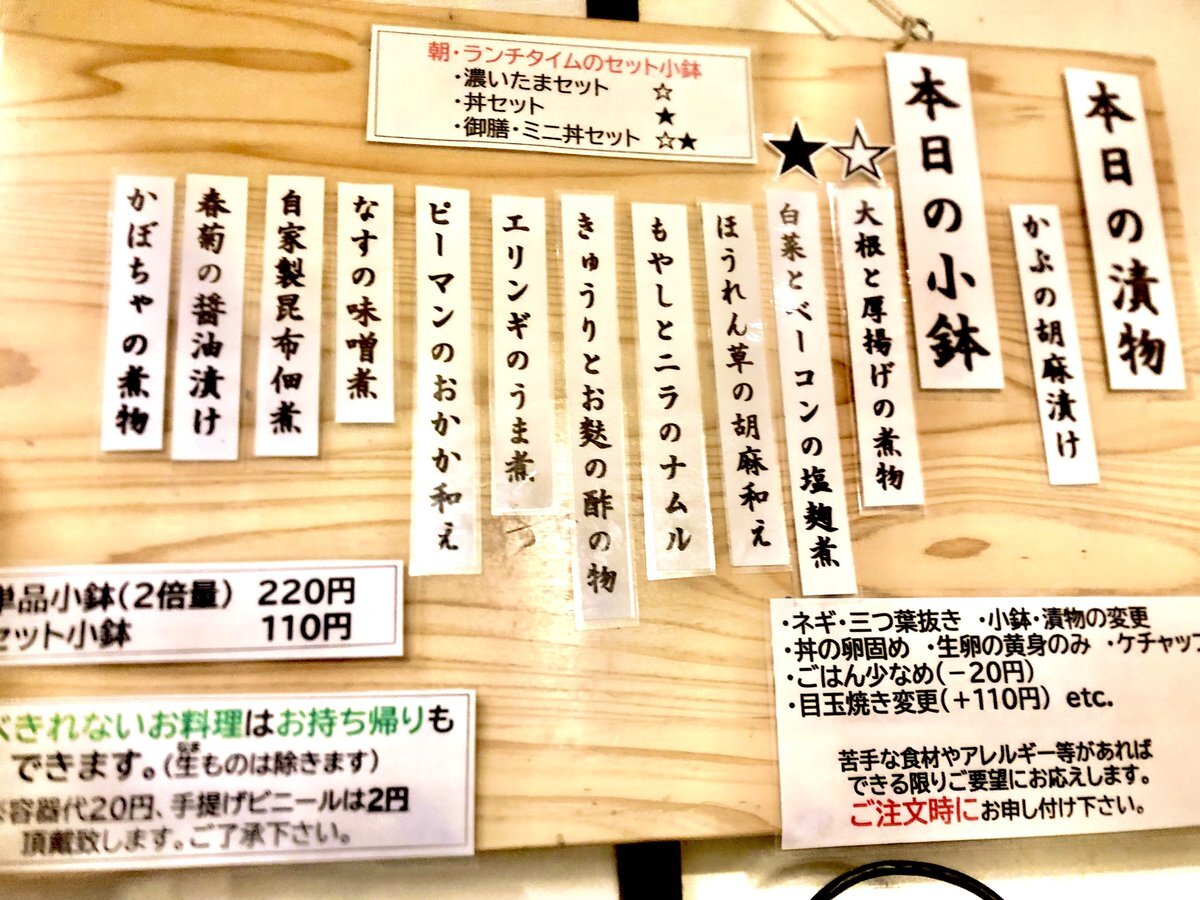 朝・ランチタイムのセット小鉢
・濃いたまセット ☆
・丼セット ★
・御膳・ミニ丼セット ☆★
本日の漬物
かぶの胡麻漬け
本日の小鉢
☆
大根と厚揚げの煮物
★
白菜とベーコンの塩麹煮
ほうれん草の胡麻和え
もやしとニラのナムル
きゅうりとお麩の酢の物
エリンギのうま煮
ピーマンのおかか和え
なすの味噌煮
自家製昆布佃煮
春菊の醤油漬け
かぼちゃの煮物
単品小鉢(2倍量) 220円
セット小鉢 110円
べきれないお料理はお持ち帰りも
できます。(生ものは除きます)
容器代20円、手提げビニールは2円
頂戴致します。ご了承下さい。
・ネギ・三つ葉抜き ・小鉢・漬物の変更
・丼の卵固め ・生卵の黄身のみ ・ケチャップ
・ごはん少なめ(−20円)
・目玉焼き変更(+110円) etc.
苦手な食材やアレルギー等があれば
できる限りご要望にお応えします。
ご注文時にお申し付け下さい。